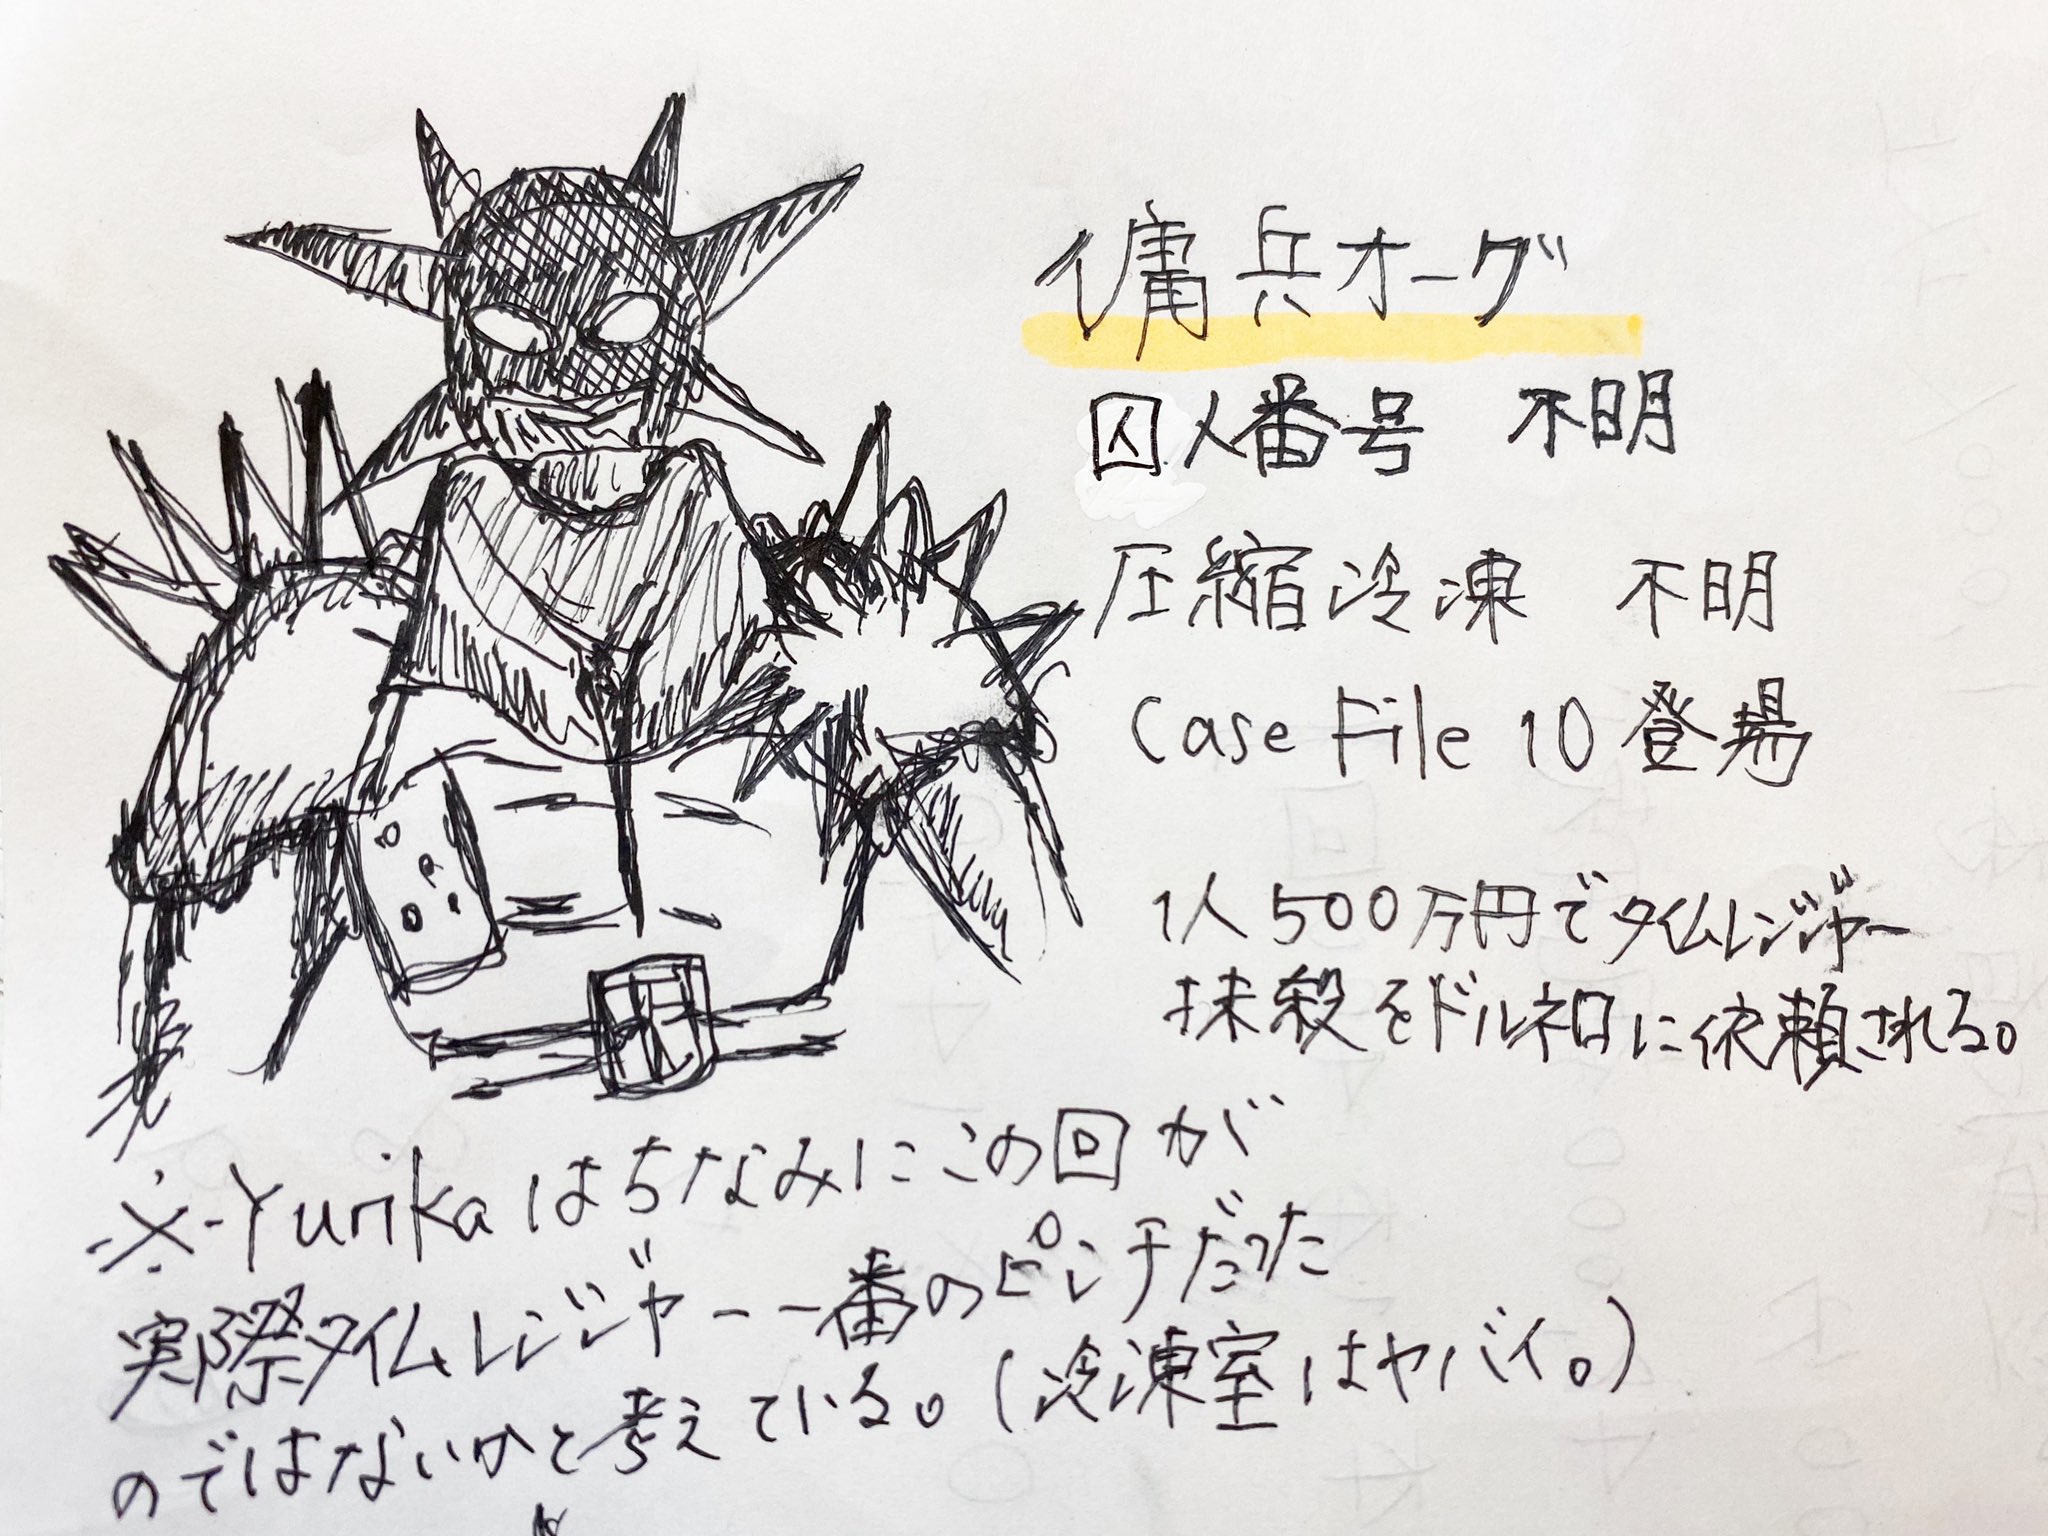 傭兵オーグ
囚人番号 不明
圧縮冷凍 不明
Case File 10 登場
1人500万円でタイムレンジャー
抹殺をドルネロに依頼される。
※Yurikaはちなみにこの回が
実際タイムレンジャー一番のピンチだった
のではないかと考えている。(冷凍室はヤバイ。)